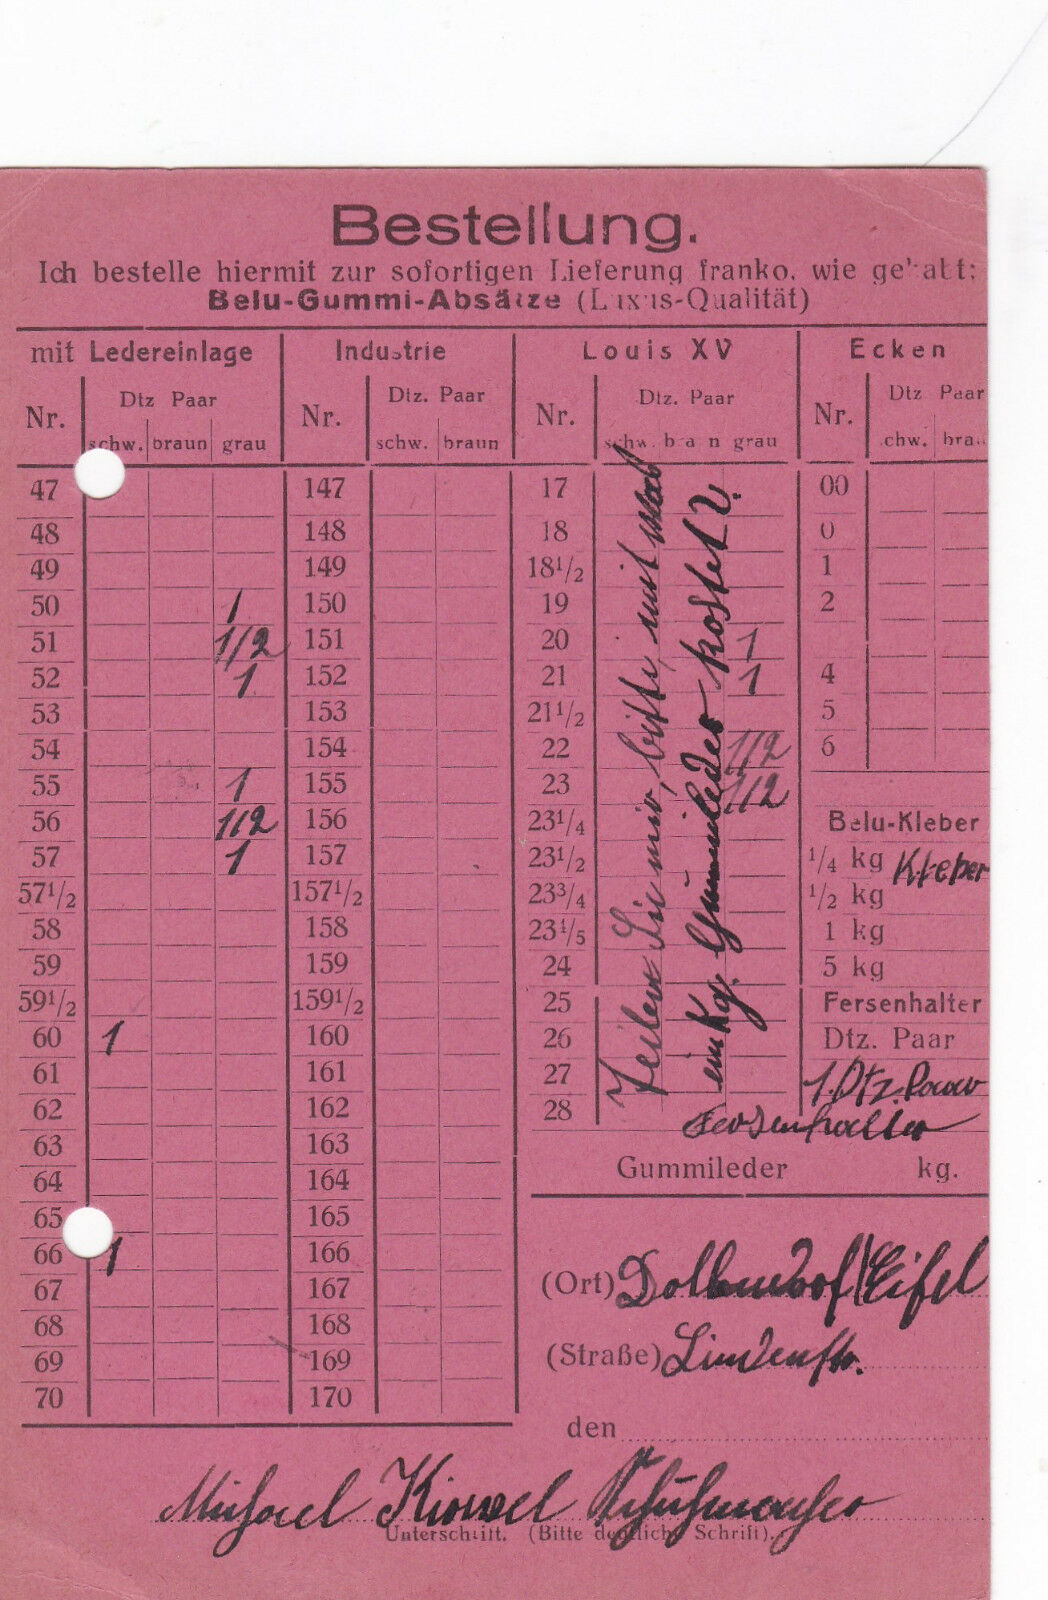 Bestellung.
Ich bestelle hiermit zur sofortigen Lieferung franko, wie gehabt:
Belu-Gummi-Absätze (Luxus-Qualität)
mit Ledereinlage Industrie Louis XV Ecken
Nr. Dtz Paar Nr. Dtz. Paar Nr. Dtz. Paar Nr. Dtz Paar
schw. braun grau schw. braun schw. braun grau schw. brau
47 147 17 00
48 148 18 0
49 149 18 1/2 1
50 1 150 19 2
51 1/2 151 20 1
52 1 152 21 1 4
53 153 21 1/2 5
54 154 22 1/2 6
55 1 155 23 1/2
56 1/2 156 23 1/4 Belu-Kleber
57 1 157 23 1/2 1/4 kg Kleber
57 1/2 157 1/2 23 3/4 1/2 kg
58 158 23 4/5 1 kg
59 159 24 5 kg
59 1/2 159 1/2 25 Fersenhalter
60 1 160 26 Dtz. Paar
61 161 27 1. Dtz. Paar
62 162 28 Fersenhalter
63 163
64 164 Gummileder kg.
65 165
66 1 166
67 167
68 168
69 169
70 170
Teilen Sie mir, bitte, mit was
ein Kg. Gummileder kostet?
(Ort) Dollendorf/Eifel
(Straße) Lindenstr.
den
Michael Schuhmacher
Unterschrift. (Bitte deutliche Schrift).